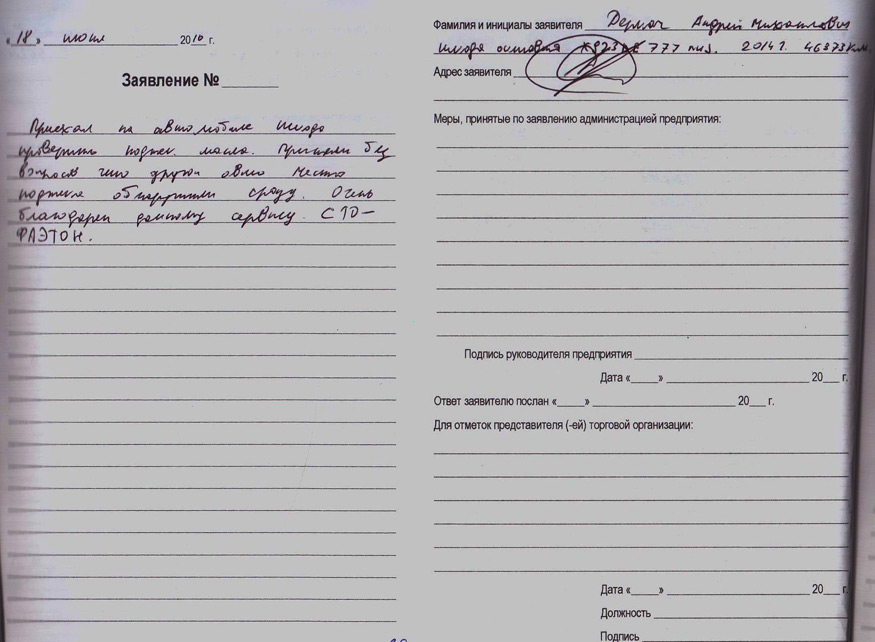 «18» июня 2016 г.
Заявление № ______
Приехал на автомобиле шкода
проверить поджек. масла. Приняли без
вопросов чего другой авто Место
поджека обнаружили сразу. Очень
благодарен данному сервису. СТО-
ФАЭТОН.
Фамилия и инициалы заявителя Андрей Михайлович
шкода октавия 777 2014 г. 46873 км.
Адрес заявителя
Меры, принятые по заявлению администрацией предприятия:
Подпись руководителя предприятия
Дата «_____» 20___ г.
Ответ заявителю послан «_____» 20___ г.
Для отметок представителя (-ей) торговой организации:
Дата «_____» 20___ г.
Должность
Подпись